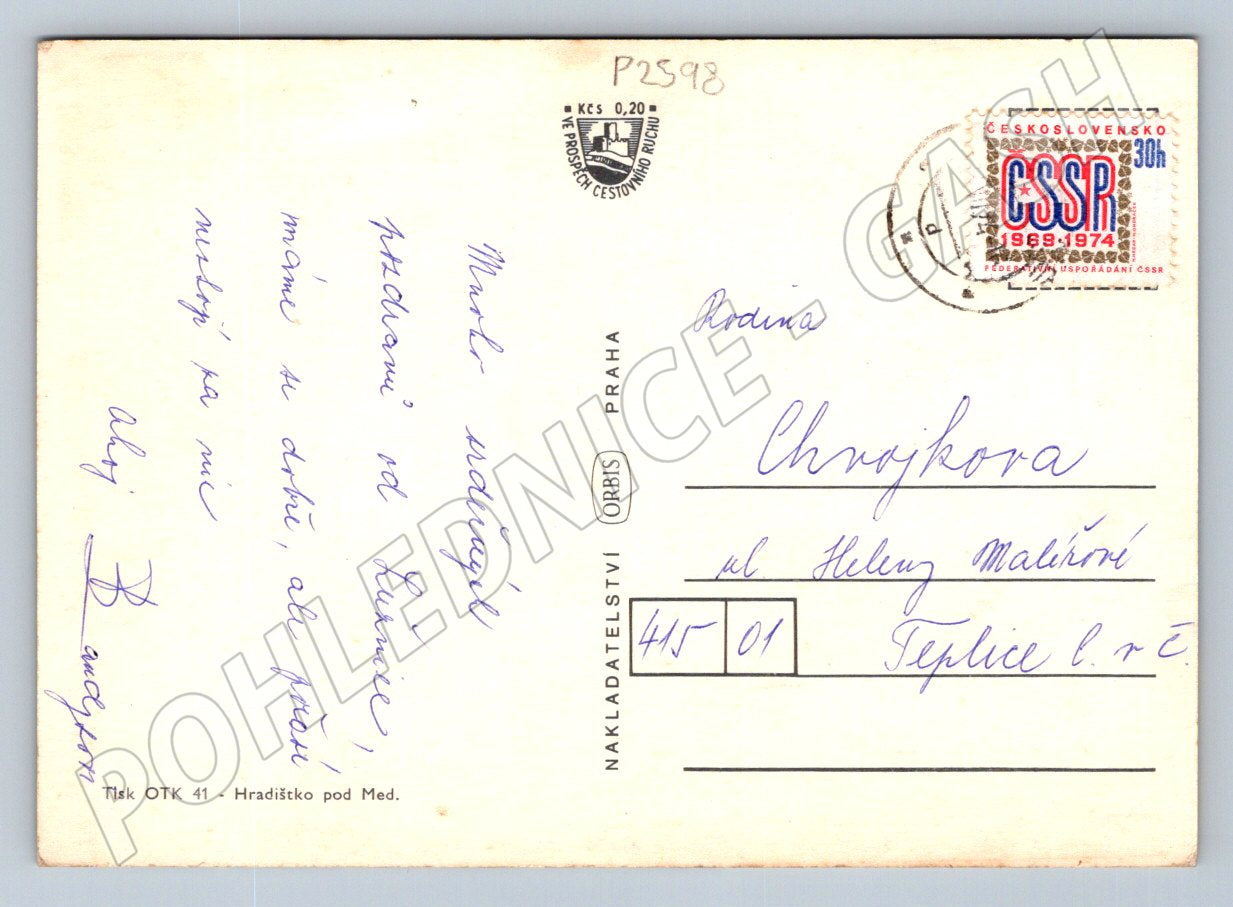 P2598
Kčs 0,20
VE PROSPĚCH CESTOVNÍHO RUCHU
ČESKOSLOVENSKO
30h
ČSSR
1969·1974
FEDERATIVNÍ USPOŘÁDÁNÍ ČSSR
Mnoho srdečných
pozdravů od Lužnice,
máme se dobře, ale počasí
nestojí za nic
Ahoj
NAKLADATELSTVÍ ORBIS PRAHA
Rodina
Chvojkova
ul. Heleny Malířové
415 01
Teplice
Tisk OTK 41 - Hradištko pod Med.
POHLEDNICE - GASH